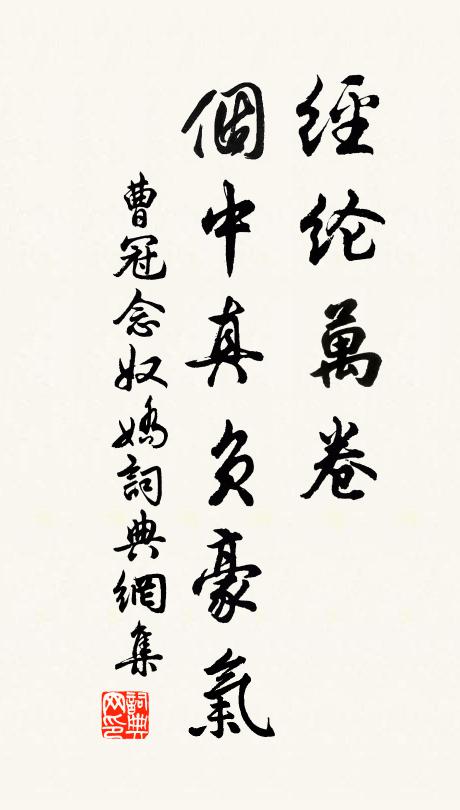 經纶萬卷
個中真負豪氣
曹冠念奴嬌詞典網集
詞典
网印